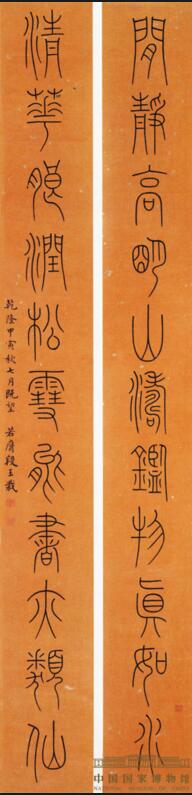 閒靜高明山濤鑑物眞如水
清華朗潤松雪能書亦類仙
乾隆甲寅秋七月既望 若膺段玉裁
中国国家博物馆
NATIONAL MUSEUM OF CHINA